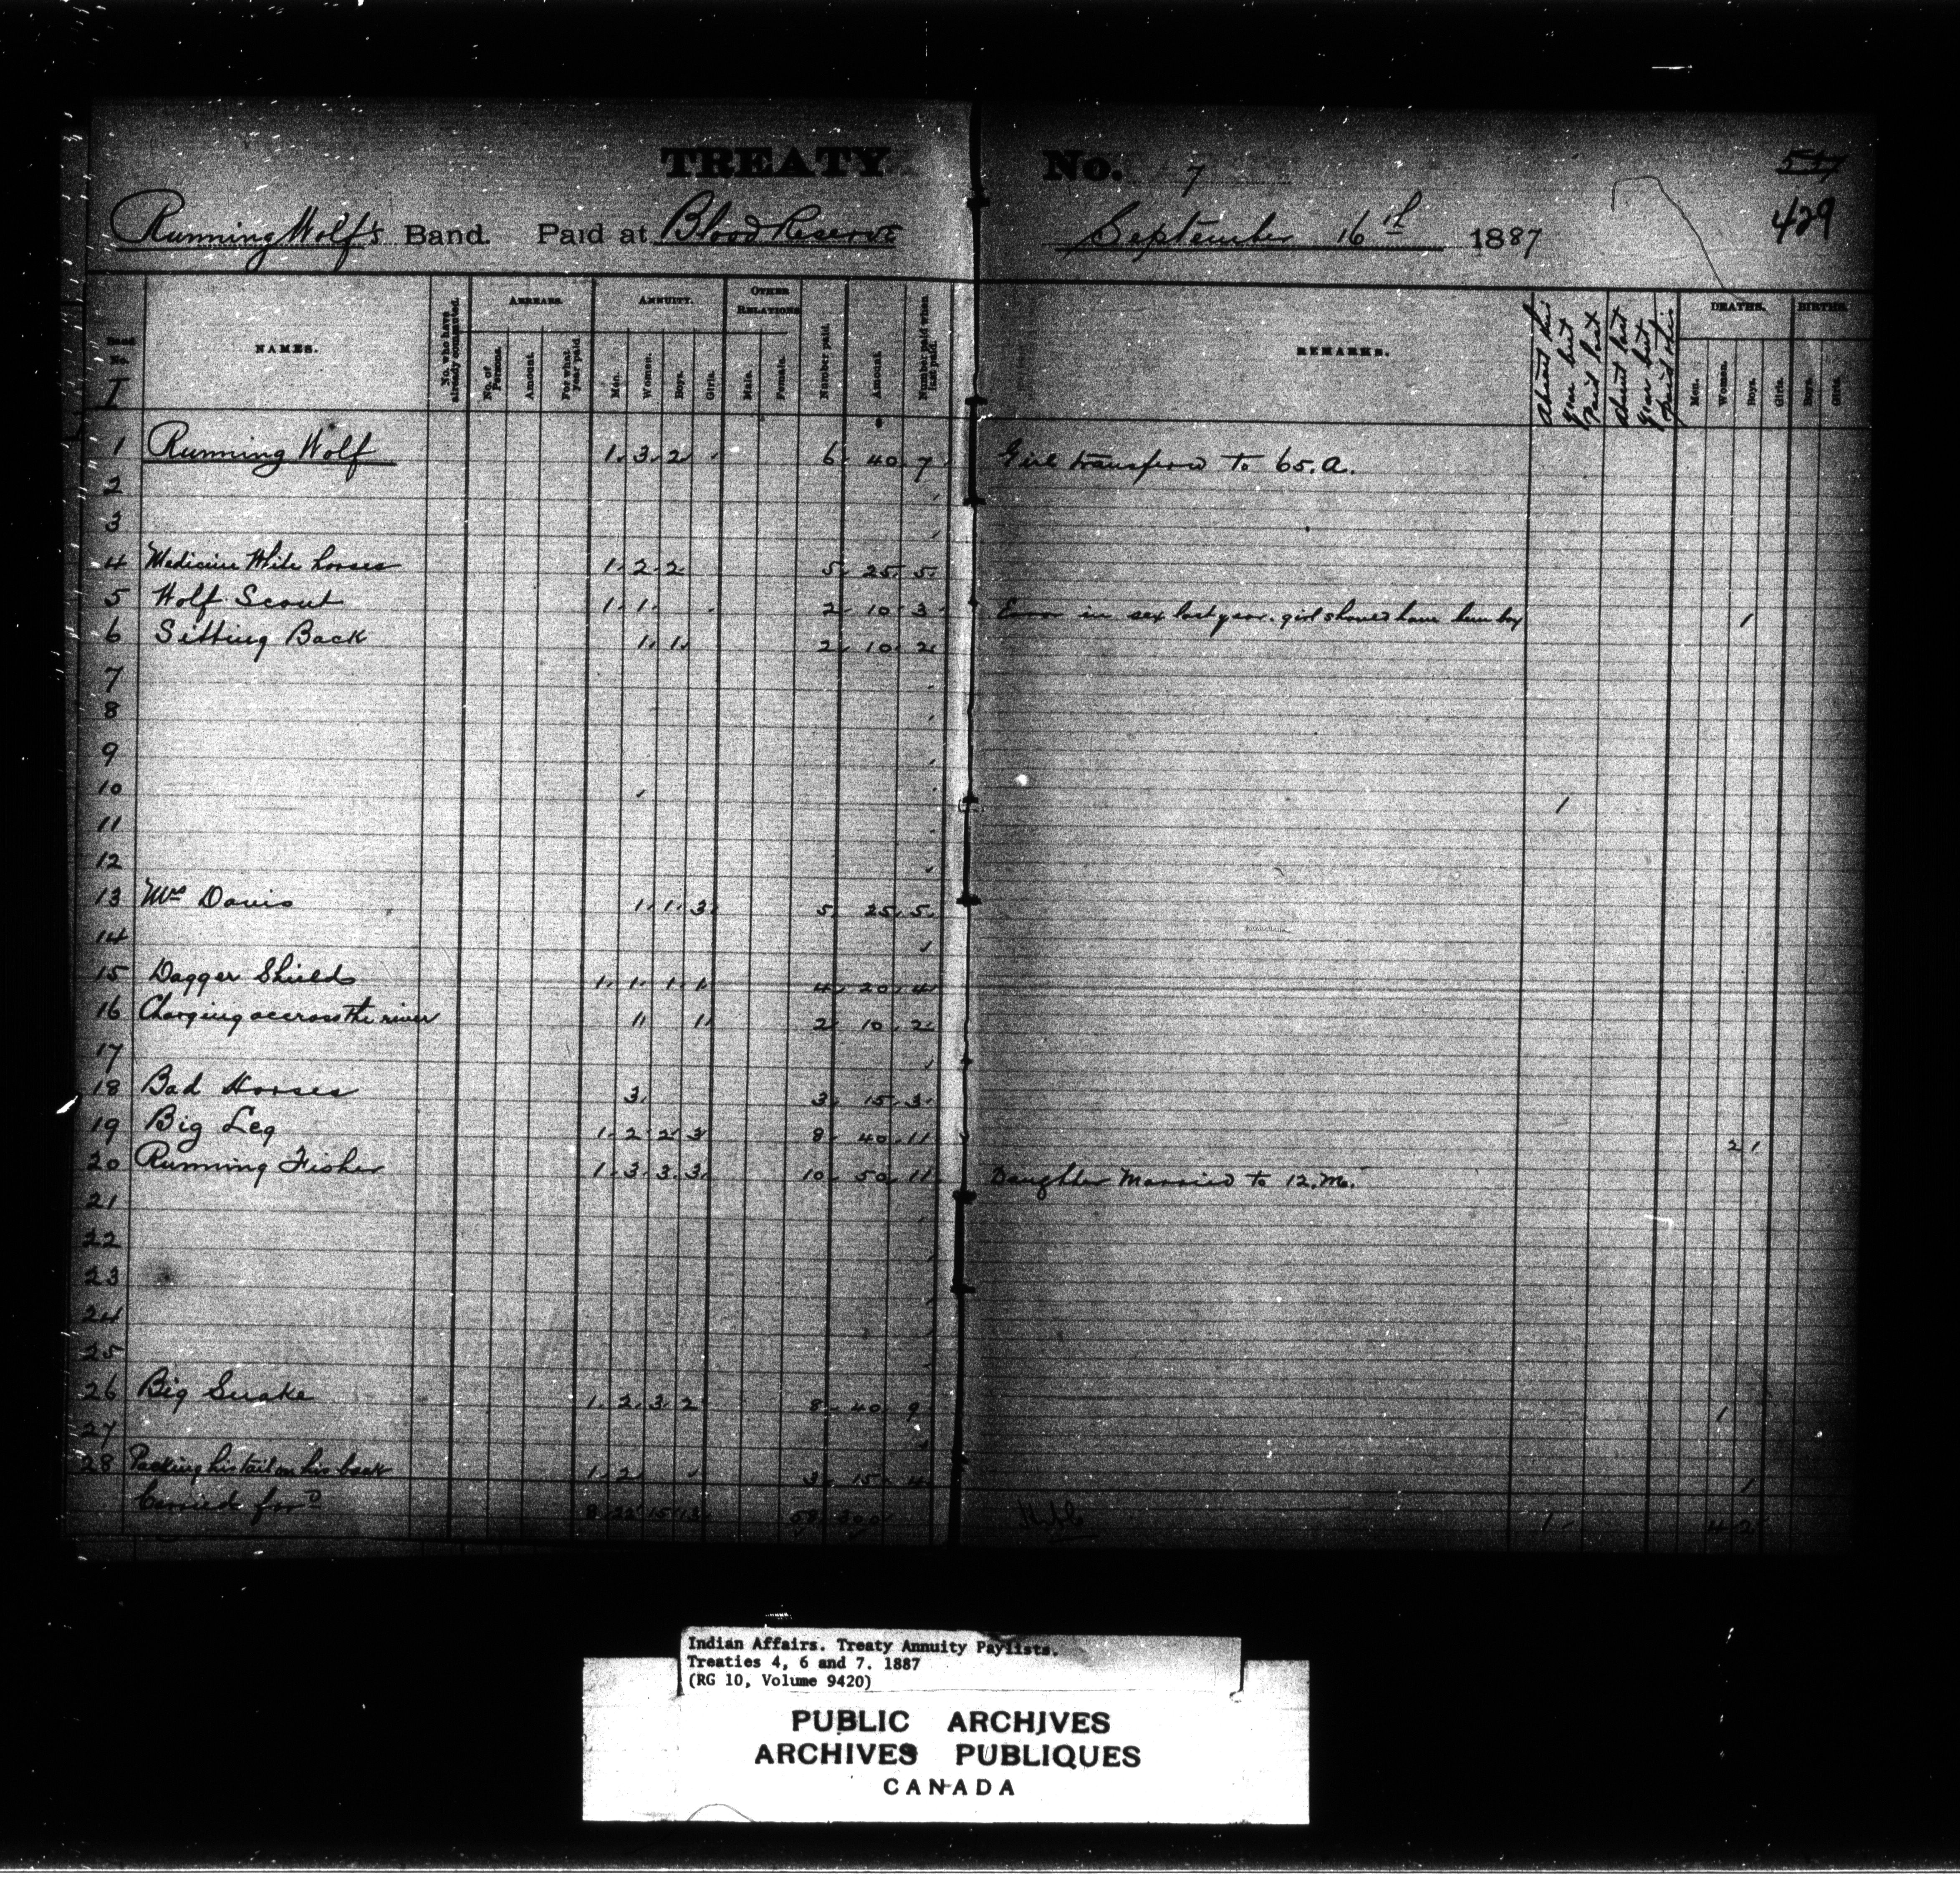 TREATY No. 7
547
429
Running Wolf's Band. Paid at Blood Reserve September 16th 1887
Band No. I
NAMES.
No. who have already commuted.
ARREARS.
No. of Persons.
Amount.
For what year paid.
ANNUITY.
Men.
Women.
Boys.
Girls.
OTHER RELATIONS
Male.
Female.
Number paid.
Amount.
Number paid when last paid.
REMARKS.
Absent this year but Paid last
Absent last year but paid this
DEATHS.
Men.
Women.
Boys.
Girls.
BIRTHS.
Boys.
Girls.
1 Running Wolf 1. 3. 2 6. 40. 7 Girl transferred to 65.A.
2
3
4 Medicine White horses 1. 2. 2 5. 25. 5.
5 Wolf Scout 1. 1. 2 10 3 Error in sex last year. girl should have been boy 1
6 Sitting Back 1. 1. 2. 10. 2.
7
8
9
10 1
11
12
13 Mrs Davis 1. 1. 3. 5. 25. 5.
14
15 Dagger Shield 1. 1. 1. 1. 4. 20. 4.
16 Charging accross the river 1. 1. 2 10. 2.
17
18 Bad Horses 3. 3. 15. 3.
19 Big Leg 1. 2. 2. 3 8. 40. 11 2 1
20 Running Fisher 1. 3. 3. 3. 10. 50. 11. Daughter Married to 12.M.
21
22
23
24
25
26 Big Snake 1. 2. 3. 2. 8. 40. 9. 1
27
28 Packing his tail on his back 1. 2 3. 15. 4. 1
Carried for'd 8. 22 15 13. 58. 300 1. 4 2
Indian Affairs. Treaty Annuity Paylists.
Treaties 4, 6 and 7. 1887
(RG 10, Volume 9420)
PUBLIC ARCHIVES
ARCHIVES PUBLIQUES
CANADA